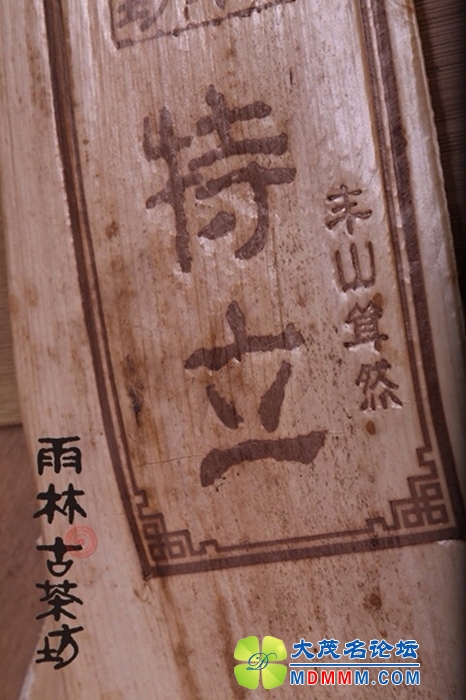 特立
丰山耸然
雨林古茶坊
大茂名论坛
MDMMM.COM